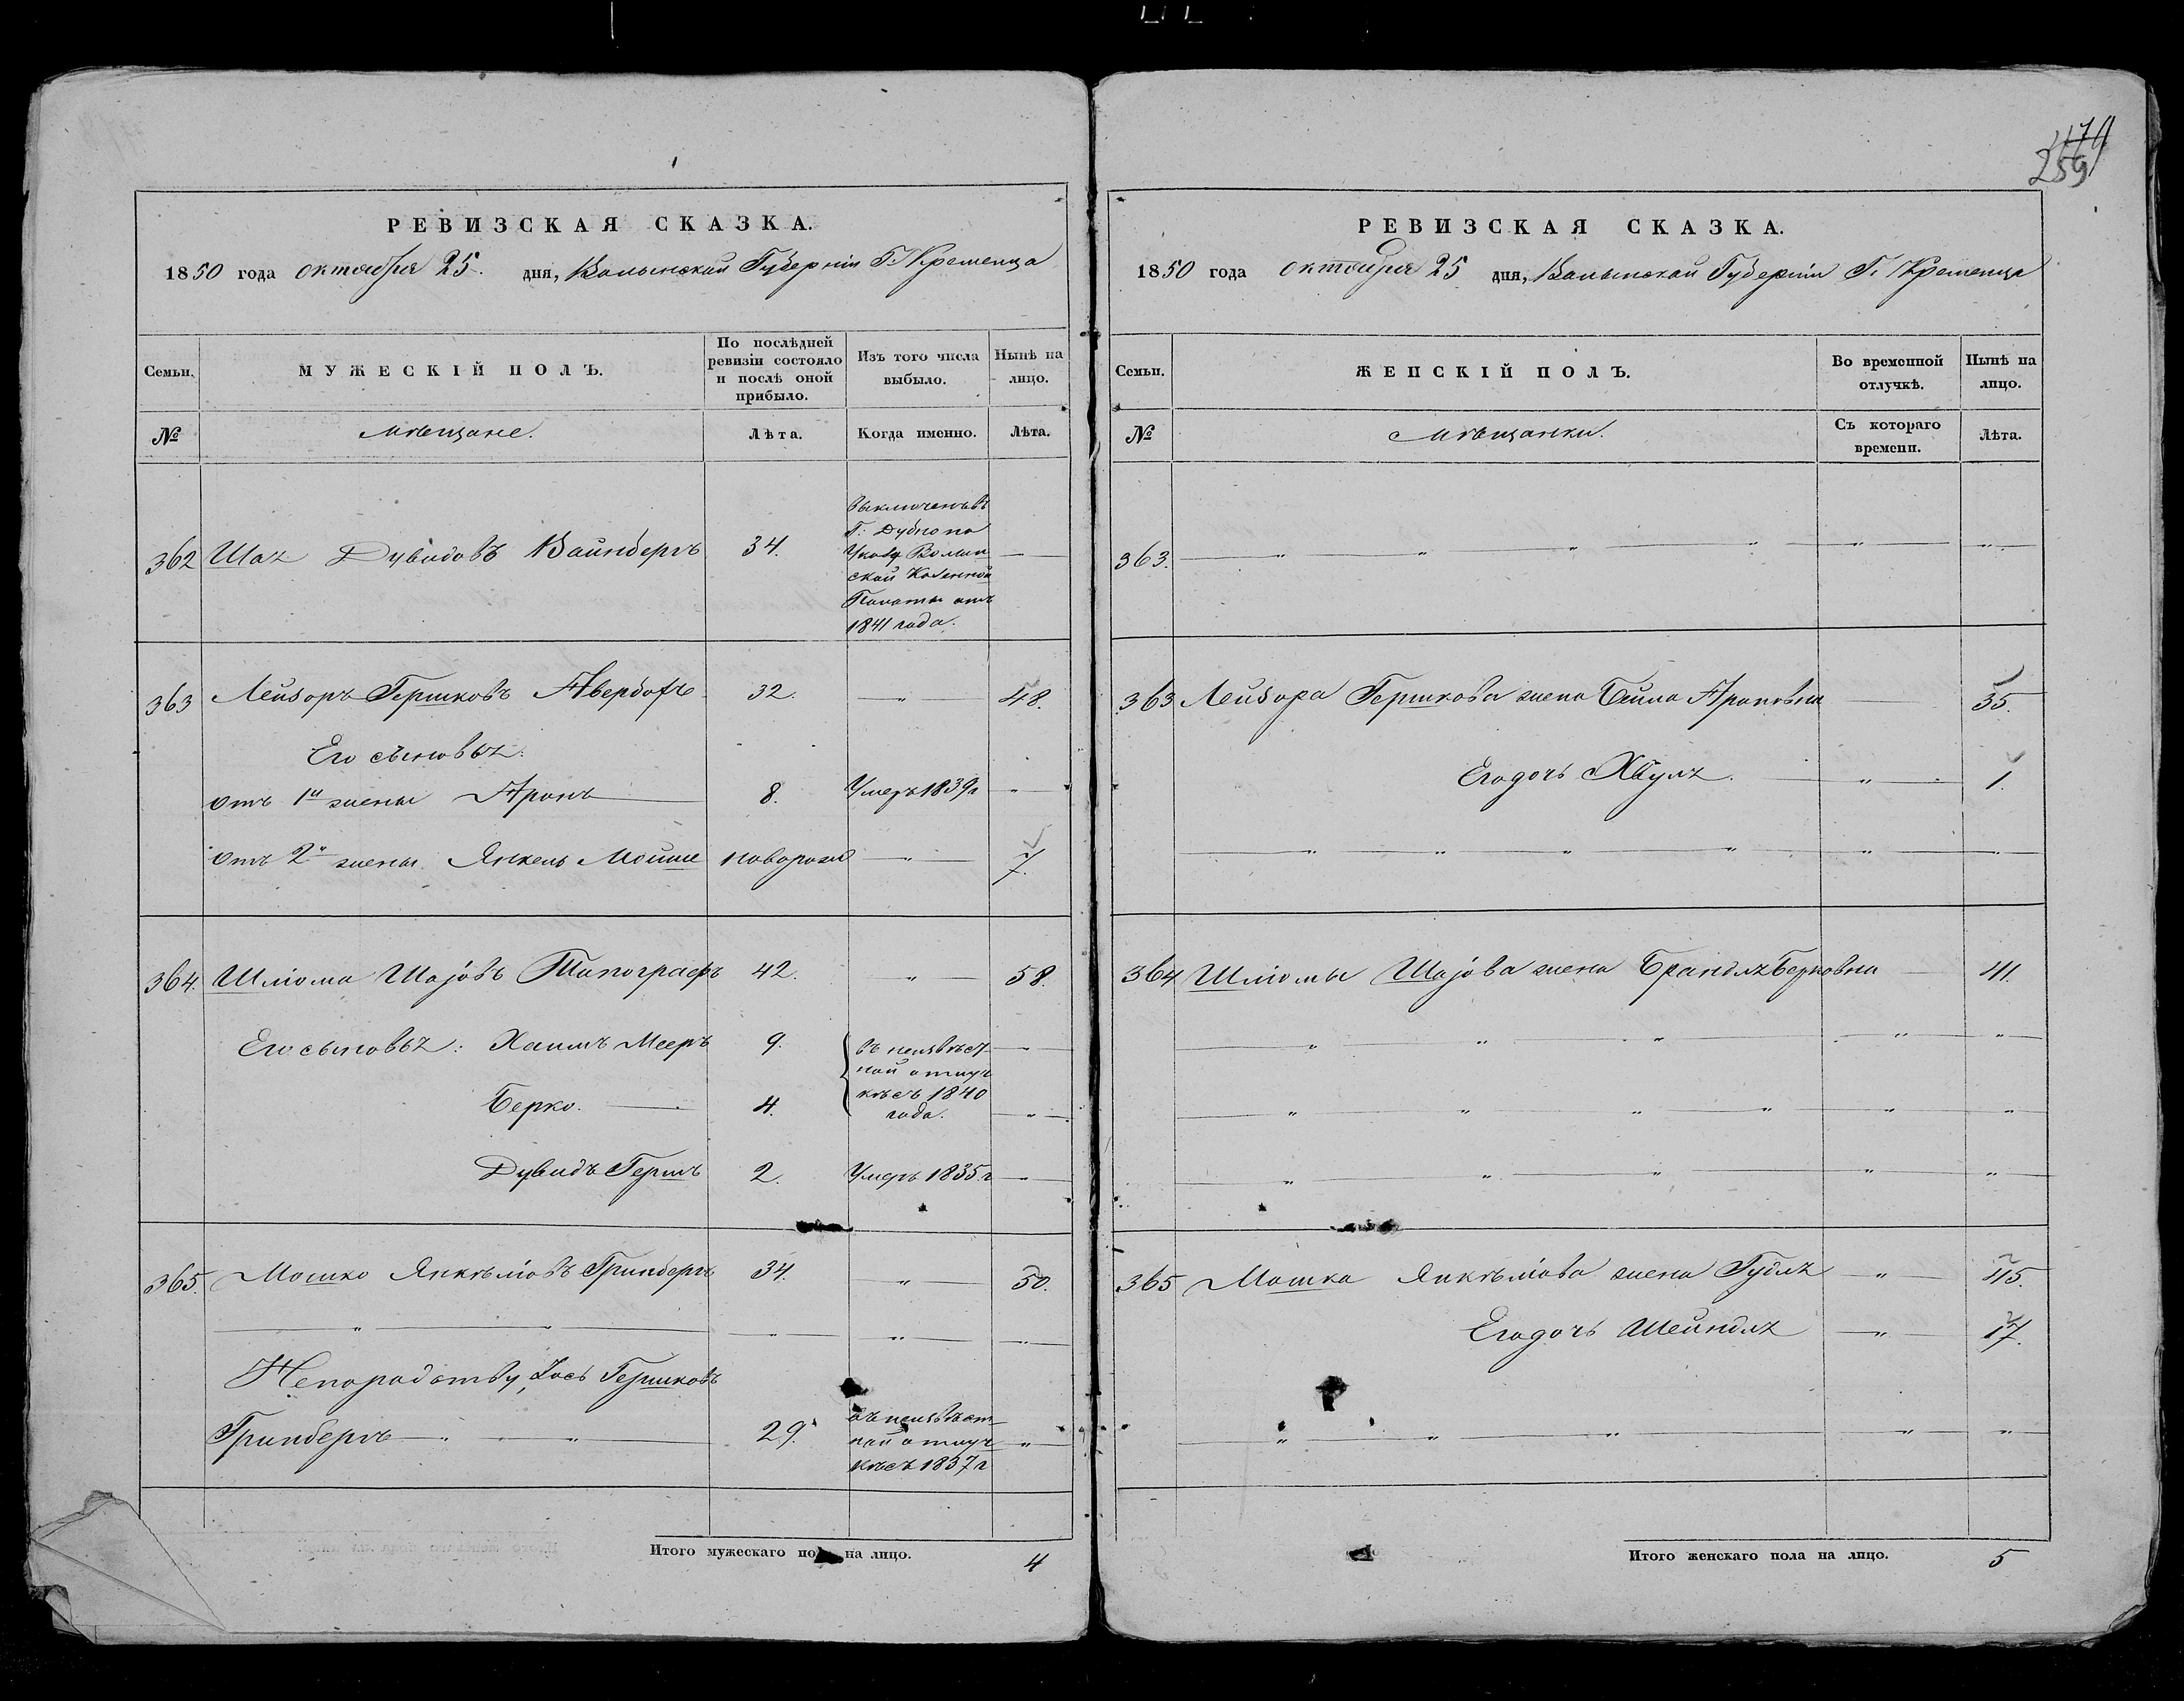 259
РЕВИЗСКАЯ СКАЗКА.
1850 года октября 25. дня, Волынской Губерніи Г. Кременца
Семьи.
МУЖЕСКІЙ ПОЛЪ.
По послѣдней ревизіи состояло и послѣ оной прибыло.
Изъ того числа выбыло.
Нынѣ на лицо.
№
Мѣщане.
Лѣта.
Когда именно.
Лѣта.
362 Шая Дувидовъ Вайнбергъ 34.
Выключенъ въ
Г: Дубно по
Указу Волын
ской Казенной
Палаты отъ
1841 года.
363 Лейзоръ Гершковъ Авербухъ 32. " 48.
Его сыновья:
отъ 1й жены Аронъ 8. Умеръ 1839г "
отъ 2й жены Янкель Мойше новорож " 7.
364. Шліома Шаіовъ Типографъ 42. " 58.
Его сыновья: Хаимъ Мееръ 9.
Берко. 4.
въ неизвѣст
ной отлуч
кѣ съ 1840
года.
Дувидъ Гершъ 2. Умеръ 1835.г "
365. Мошко Янкѣліовъ Гринбергъ 34. " 50.
Непородству, Іось Гершковъ
Гринбергъ 29.
въ неизвѣст
ной отлуч
кѣ съ 1837г
Итого мужескаго пола на лицо. 4
РЕВИЗСКАЯ СКАЗКА.
1850 года октября 25 дня, Волынской Губерніи Г. Кременца
Семьи.
ЖЕНСКІЙ ПОЛЪ.
Во временной отлучкѣ.
Нынѣ на лицо.
№
Мѣщанки.
Съ котораго времени.
Лѣта.
363.
363 Лейзора Гершкова жена Бейла Ароновна 35.
Его дочь Хвуля. " 1.
364 Шліомы Шаіова жена Брандля Берковна 41.
365 Мошка Янкѣліова жена Гудля " 45.
Его дочь Шейндля " 17.
Итого женскаго пола на лицо. 5